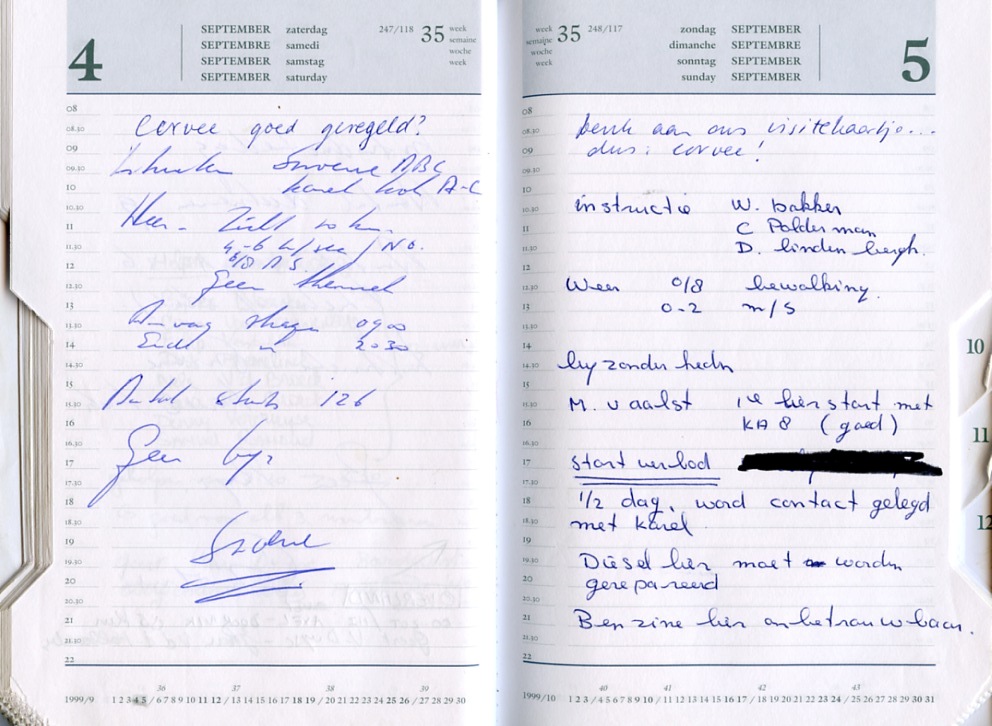 4
SEPTEMBER zaterdag
SEPTEMBRE samedi
SEPTEMBER samstag
SEPTEMBER saturday
247/118
35
week
semaine
woche
week
08
08.30
09
09.30
10
10.30
11
11.30
12
12.30
13
13.30
14
14.30
15
15.30
16
16.30
17
17.30
18
18.30
19
19.30
20
20.30
21
21.30
22
Corvee goed geregeld?
ABC
Karel A-C
Weer. Zicht 10 km.
4-6 m/sec / NO.
6/8 A.S.
Geen thermiek
Aanvang 0900
Einde 2030
Aantal starts 126
Geen bijz
36 37 38 39
1999/9 1 2 3 4 5 / 6 7 8 9 10 11 12 / 13 14 15 16 17 18 19 / 20 21 22 23 24 25 26 / 27 28 29 30
week
semaine
woche
week
35
248/117
zondag SEPTEMBER
dimanche SEPTEMBRE
sonntag SEPTEMBER
sunday SEPTEMBER
5
08
08.30
09
09.30
10
10.30
11
11.30
12
12.30
13
13.30
14
14.30
15
15.30
16
16.30
17
17.30
18
18.30
19
19.30
20
20.30
21
21.30
22
Denk aan ons visitekaartje...
dus: corvee!
instructie W. Bakker
C Polderman
D. lindenbergh.
Weer 0/8 bewolking.
0-2 m/s
byzonderhedn
M. v aalst 1e lierstart met
KA 8 (goed)
start verbod
1/2 dag, word contact gelegd
met Karel
Diesel lier moet worden
gerepareerd
Benzine lier onbetrouwbaar.
40 41 42 43
1999/10 1 2 3 / 4 5 6 7 8 9 10 / 11 12 13 14 15 16 17 / 18 19 20 21 22 23 24 / 25 26 27 28 29 30 31
10
11
12